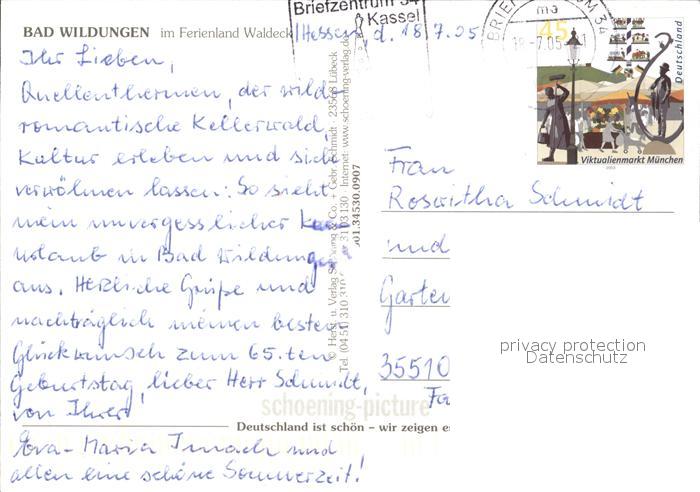 BAD WILDUNGEN im Ferienland Waldeck/Hessen, d. 18.7.05
Ihr Lieben,
Quellenthermen, der wild
romantische Kellerwald,
Kultur erleben und sich
verwöhnen lassen: So sieht
mein unvergesslicher
urlaub in Bad Wildungen
aus. Herzliche Grüße und
nachträglich meinen besten
Glückwunsch zum 65.ten
Geburtstag, lieber Herr Schmidt,
von Ihrer
Eva-Maria und
allen eine schöne Sommerzeit!
© Herst. u. Verlag Schöning & Co. + Gebr. Schmidt · 23568 Lübeck
Tel. (0451) 310 310 Internet: www.schoening-verlag.de
01.34530.0907
Briefzentrum 34
Kassel
BRIEFZENTRUM 34
ma
18.-7.05
45
Deutschland
Viktualienmarkt München
Frau
Roswitha Schmidt
und
Garten
35510
schoening-picture
Deutschland ist schön – wir zeigen es
privacy protection
Datenschutz